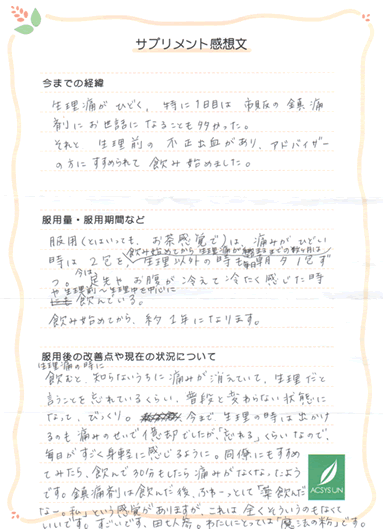 サプリメント感想文
今までの経緯
生理痛がひどく、特に1日目は市販の鎮痛
剤にお世話になることも多かった。
それと生理前の不正出血があり、アドバイザー
の方にすすめられて飲み始めました。
服用量・服用期間など
服用(とはいっても、お茶感覚で)は、痛みがひどい
飲み始めてから生理痛が
時は2包を、生理以外の時も朝夕1包ず
つ。今は、足先やお腹が冷えて冷たく感じた時
や生理前〜生理中を中心に
飲んでいる。
飲み始めてから、約1年になります。
服用後の改善点や現在の状況について
生理痛の時に
飲むと、知らないうちに痛みが消えていて、生理だと
言うことを忘れているくらい、普段と変わらない状態に
なって、びっくり。今まで、生理の時は出かけ
るのも痛みのせいで億却でしたが、「忘れる」くらいなので、
毎日がすごく身軽に感じるように。同僚にもすすめ
てみたら、飲んで30分もしたら痛みがなくなったよう
です。鎮痛剤は飲んだ後、ふわ〜っとして「薬飲んだ
な〜。私」という感覚がありますが、これは全くそういうのもなくて
いいです。すごいです、田七人参。わたしにとっては「魔法の粉」です。
ACSYS UN